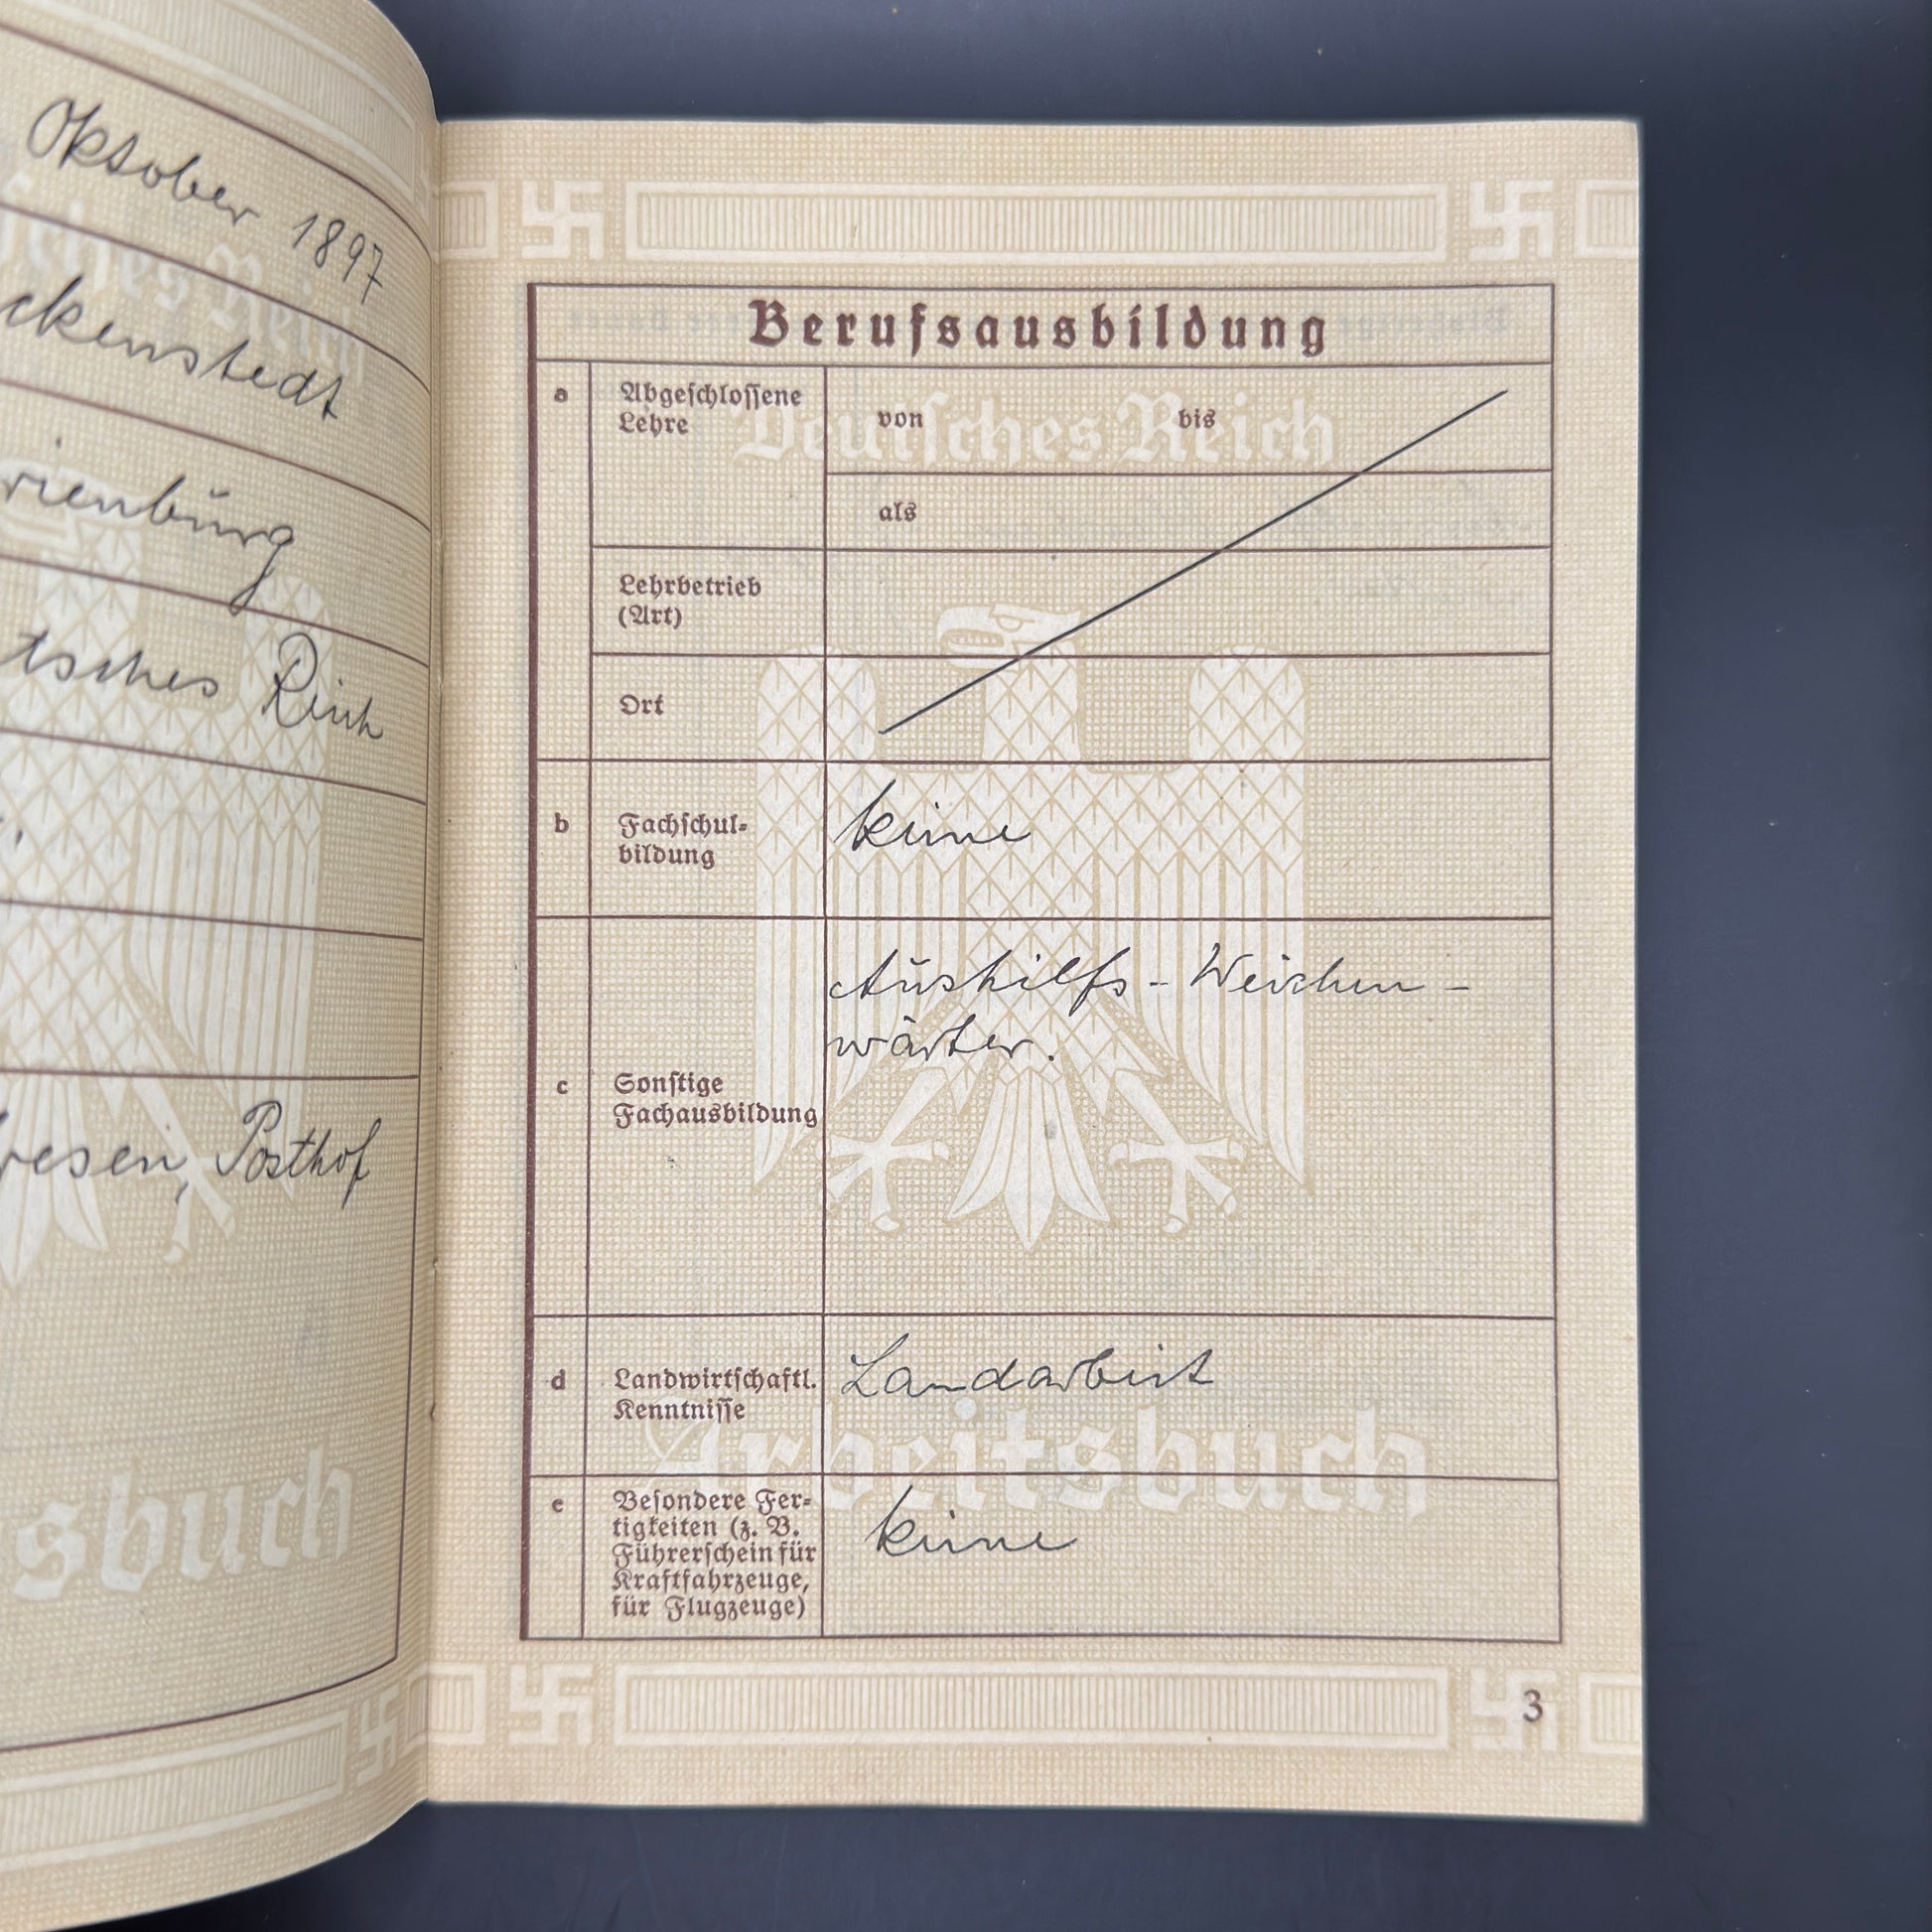 Oktober 1897
ckenstedt
rienburg
tsches Reich
wesen, Posthof
sbuch
Berufsausbildung
a
Abgeschlossene
Lehre
von bis
Deutsches Reich
als
Lehrbetrieb
(Art)
Ort
b
Fachschul-
bildung
keine
c
Sonstige
Fachausbildung
Aushilfs-Weichen-
wärter.
d
Landwirtschaftl.
Kenntnisse
Landarbeit
Arbeitsbuch
e
Besondere Fer-
tigkeiten (z. B.
Führerschein für
Kraftfahrzeuge,
für Flugzeuge)
keine
3